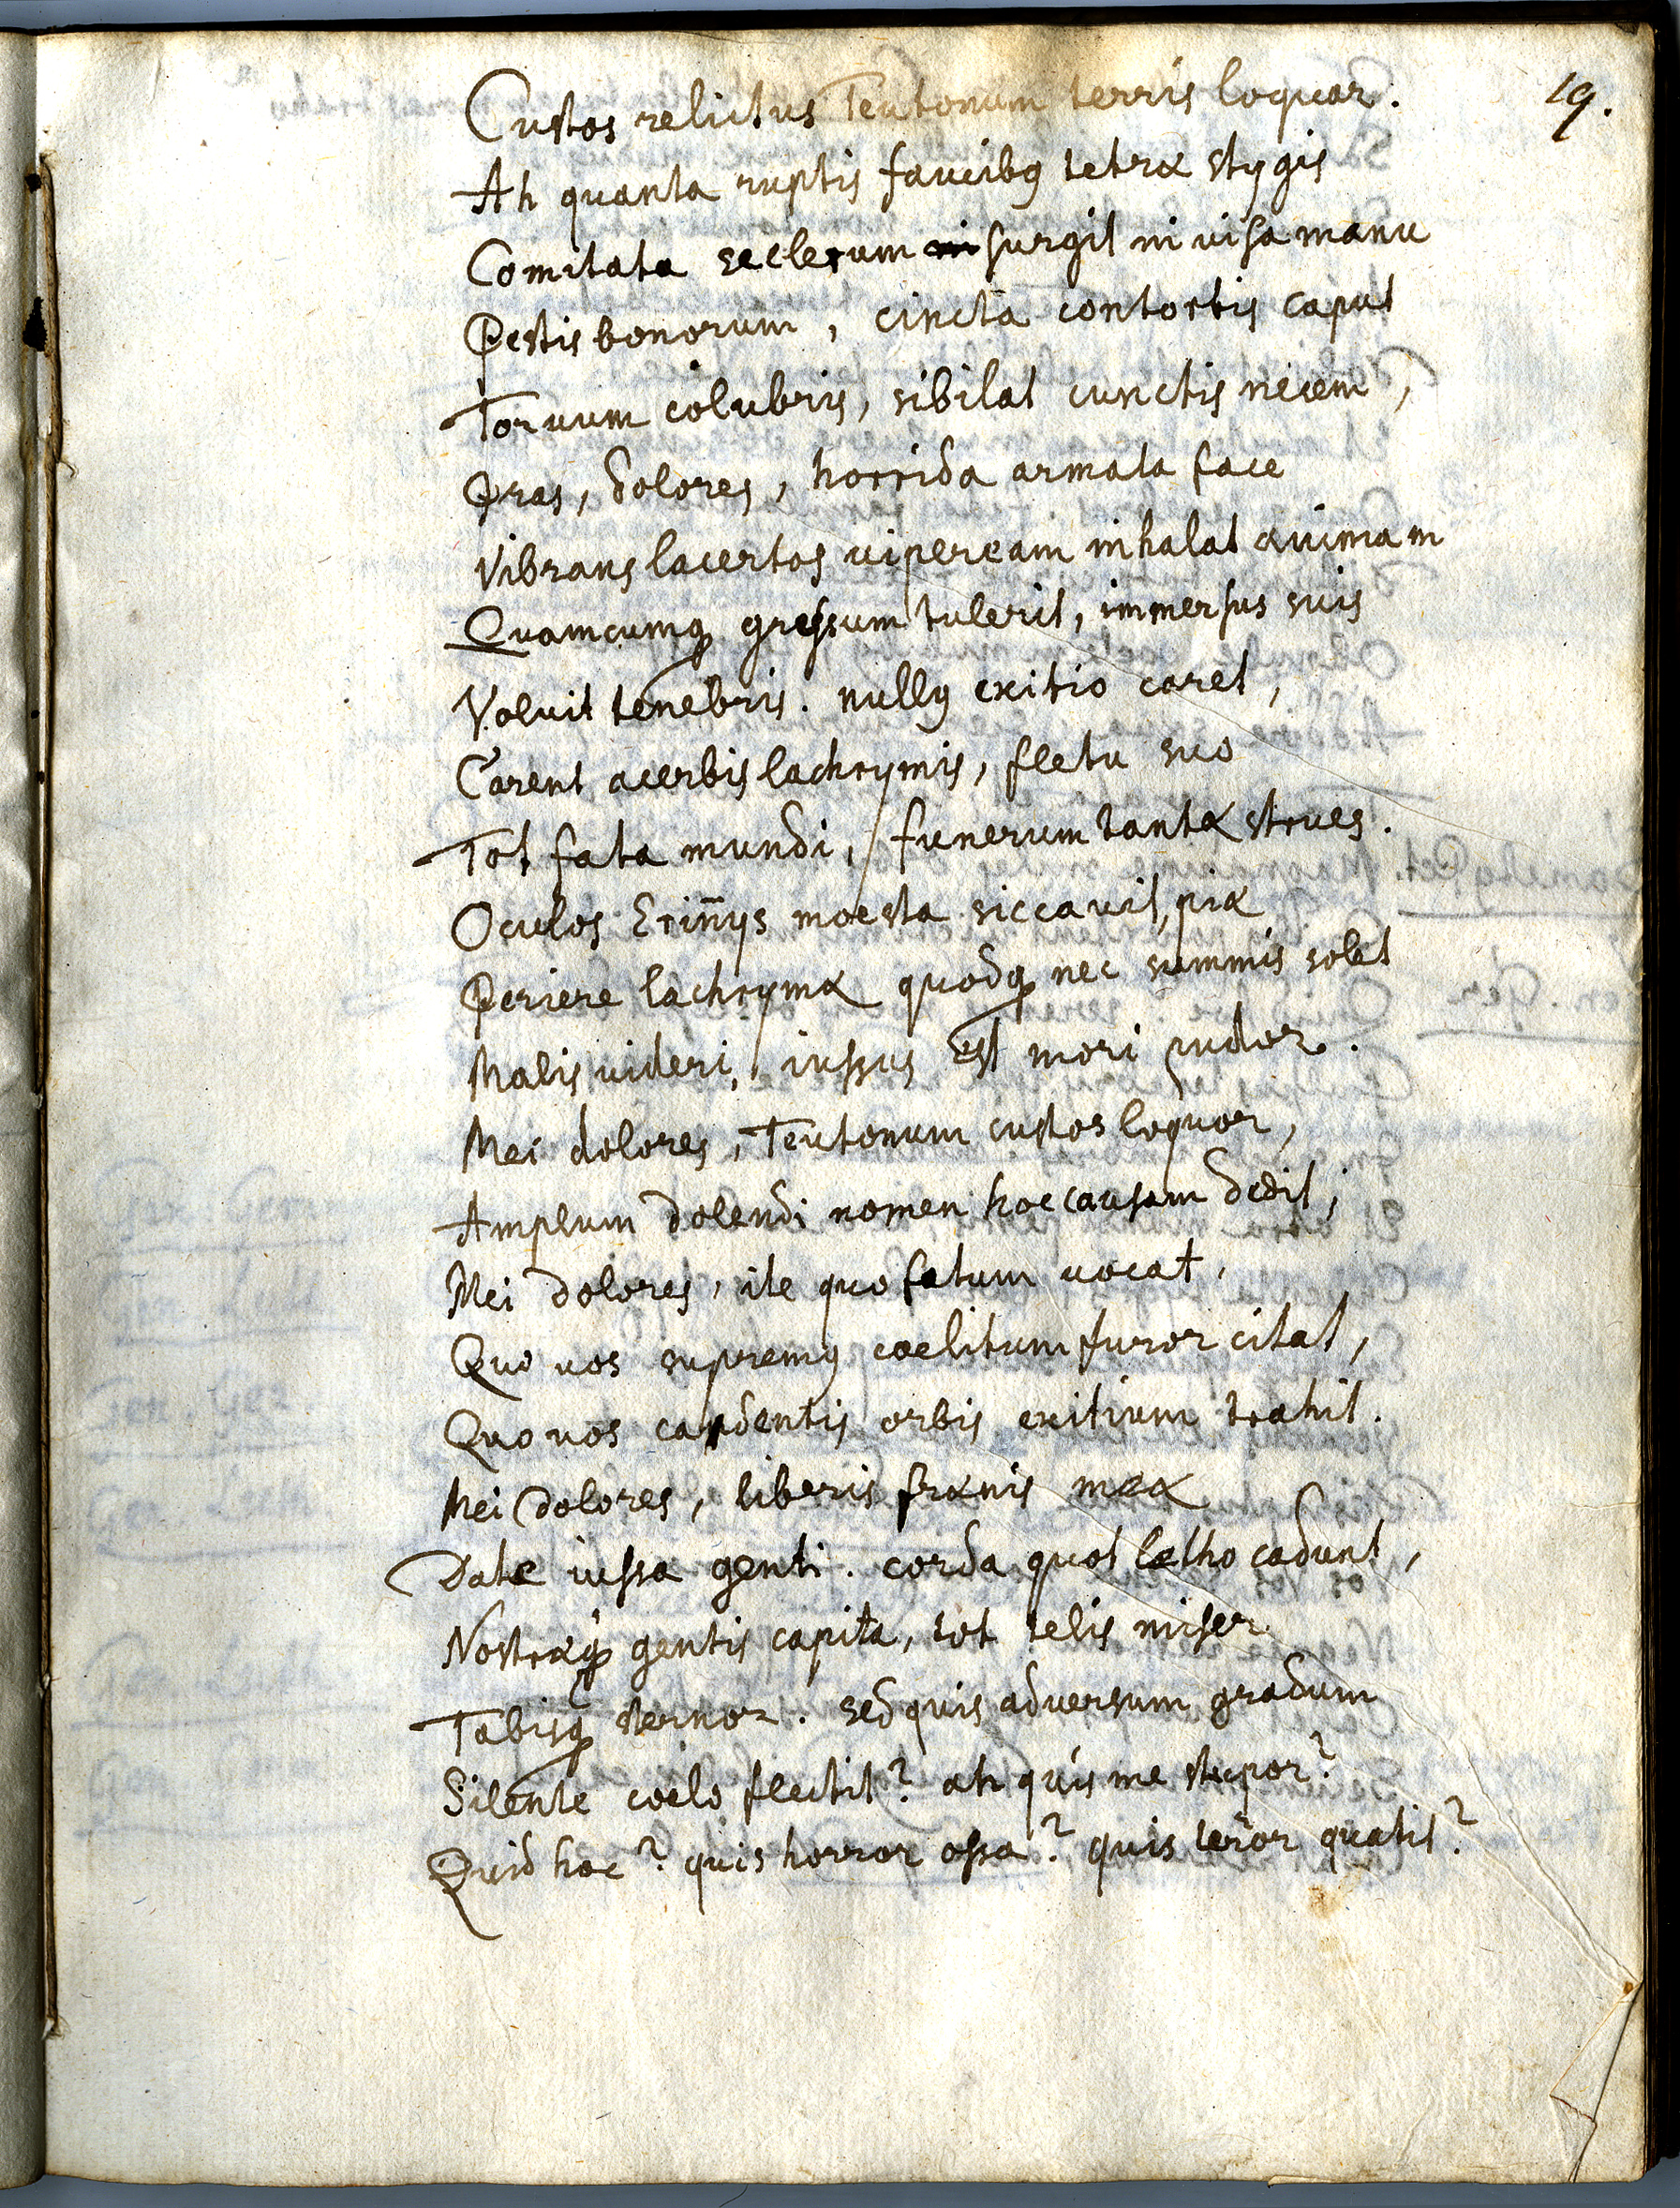 19.
Custos relictus Teutonum terris loquor.
Ah quanta ruptis faucibꝰ tetræ stygis
Comitata scelerum surgit invisa manu
Pestis bonorum, cincta contortis caput
Torvum colubris, sibilat cunctis necem,
Iras, dolores, horrida armata face
Vibrans lacertos vipeream inhalat animam
Quamcumqꝫ gressum tulerit, immersus suis
Voluit tenebris. nullꝰ exitio caret,
Carent acerbis lachrymis, fletu suo
Tot fata mundi, funerum tantæ strues.
Oculos Erin̄ys moesta siccavit, piæ
Periere lachrymæ quodqꝫ nec summis solet
Malis videri, iussus est mori pudor.
Mei dolores, Teutonum custos loquor,
Amplum dolendi nomen hoc causam dedit;
Mei dolores, ite quo fatum vocat,
Quo vos supremꝰ coelitum furor citat,
Quo vos cadentis orbis exitium trahit.
Mei dolores, liberis frænis meæ
Date iussa genti. corda quot letho cadunt,
Nostræqꝫ gentis capita, tot telis miser
Tabisqꝫ sternor. sed quis adversum gradum
Silente coelo flectit? ah quis me stupor?
Quid hoc? quis horror ossa? quis ter̄or quatit?